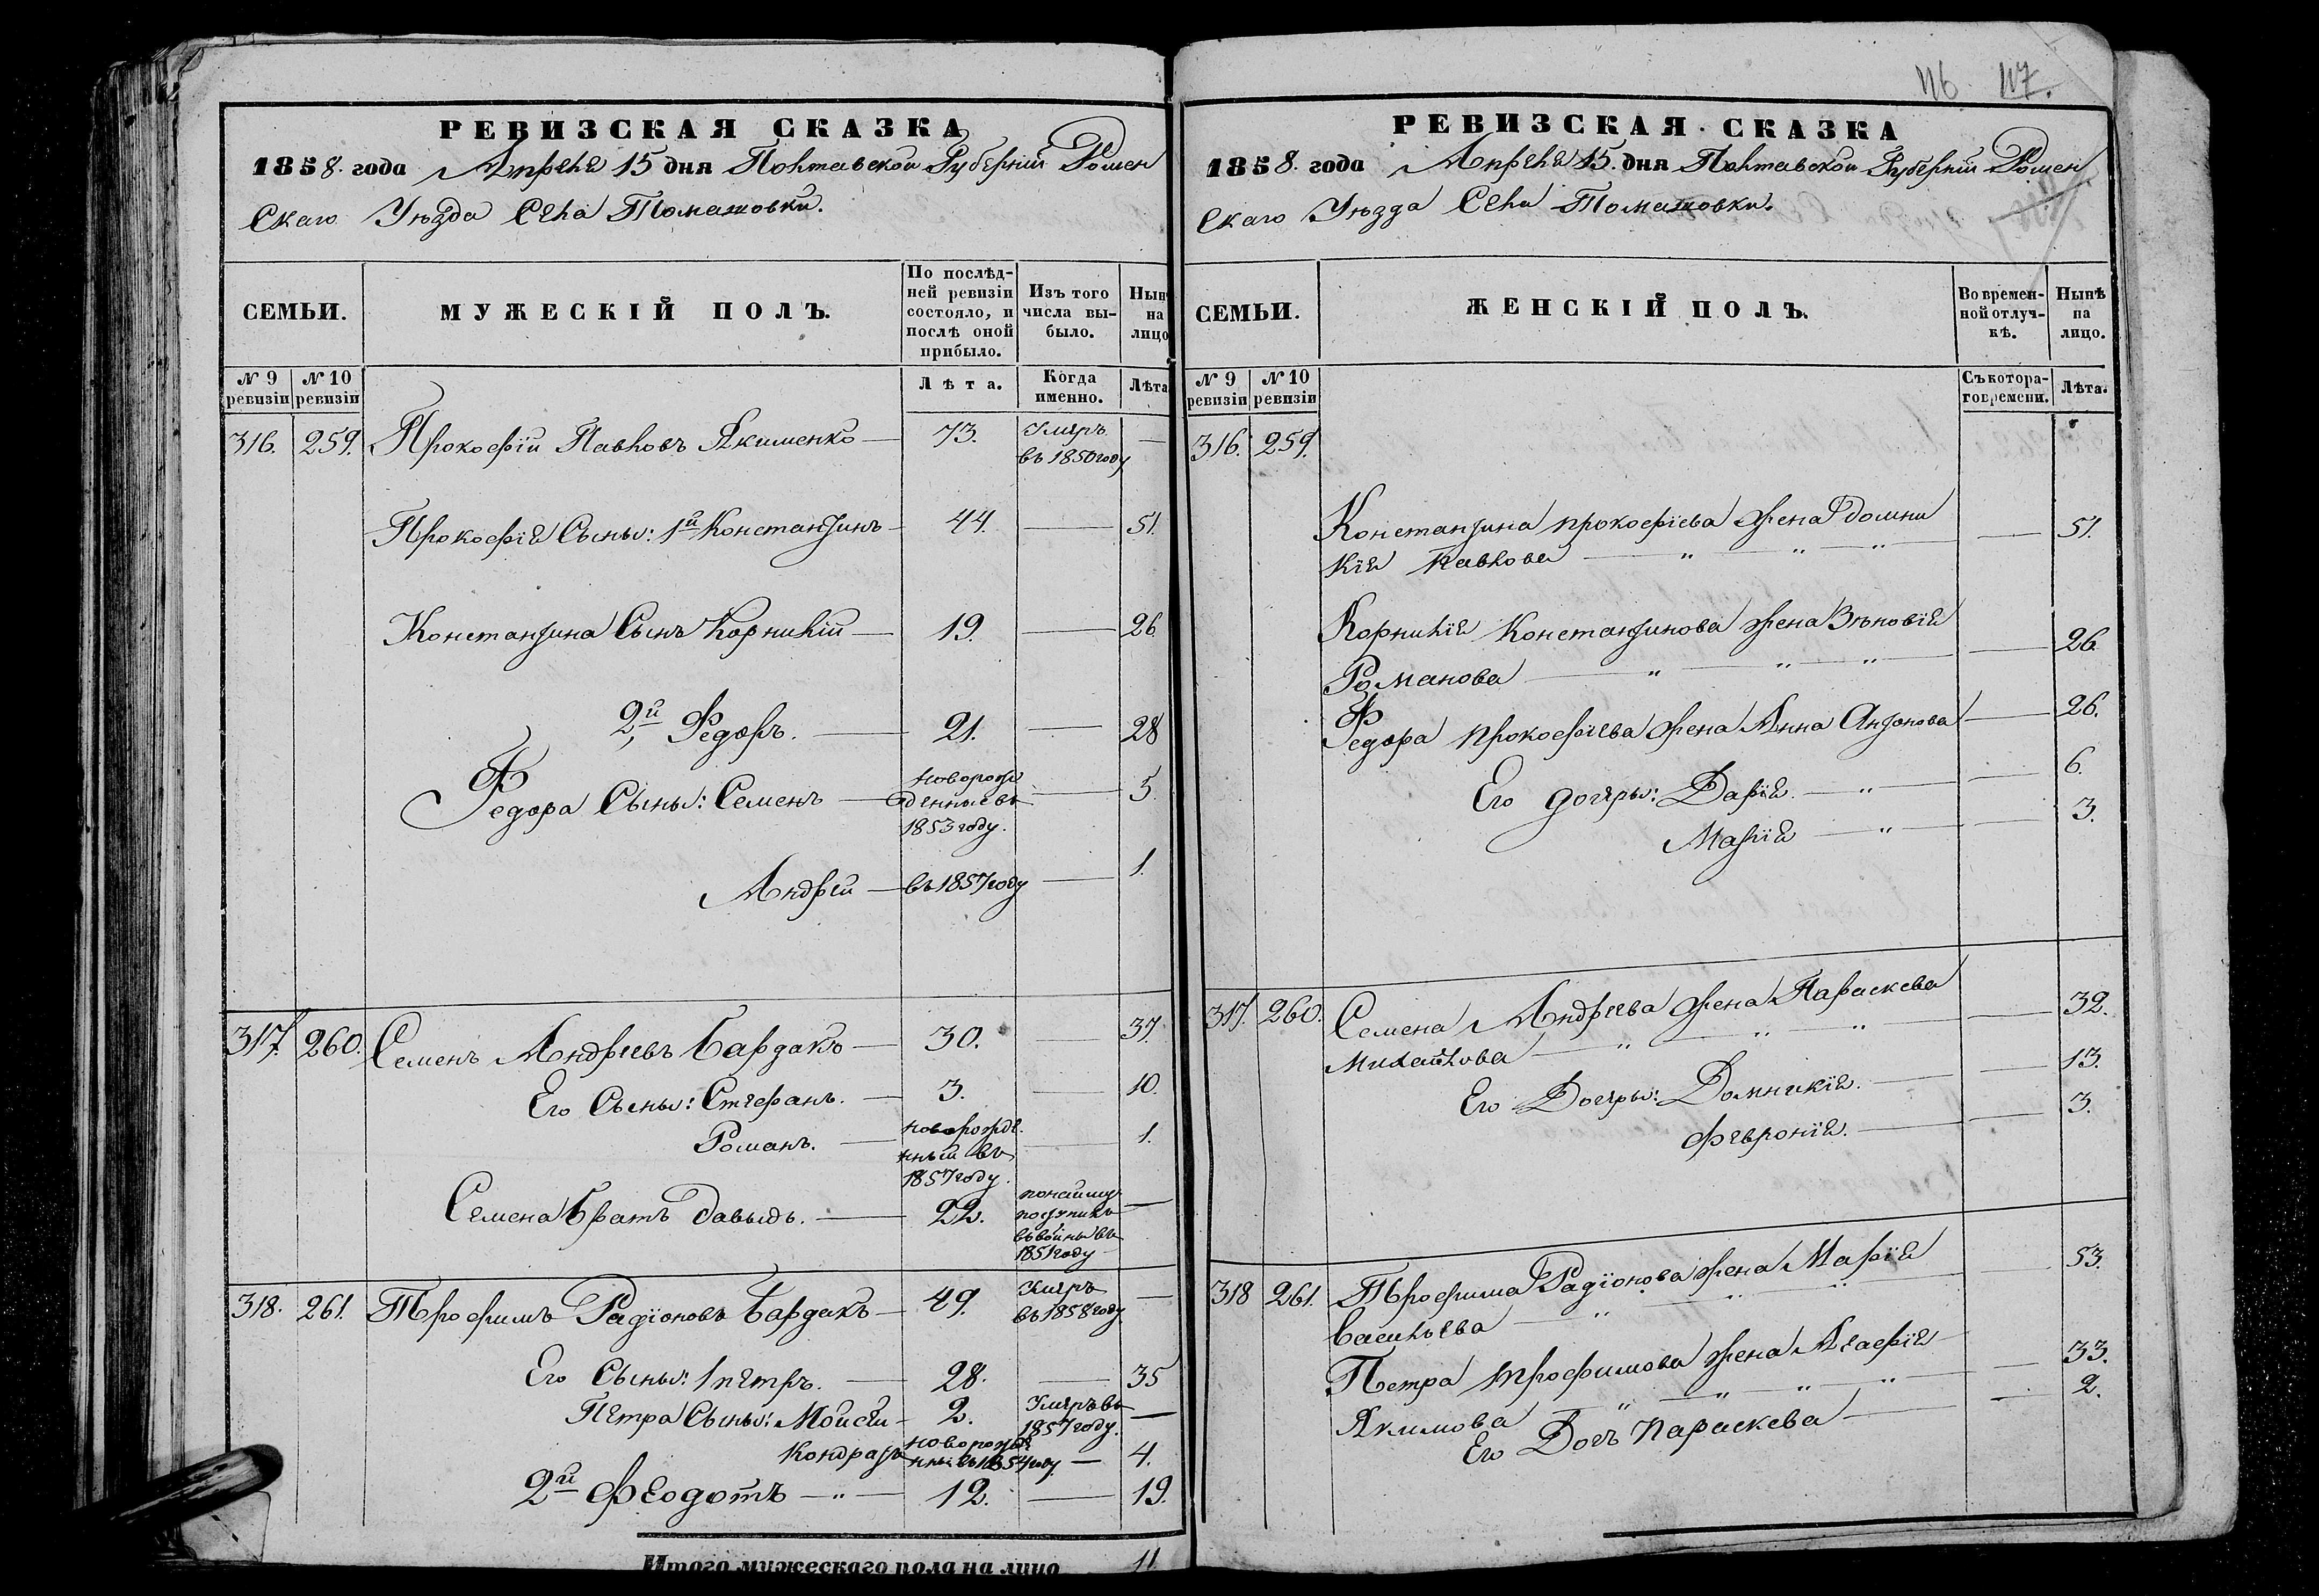 РЕВИЗСКАЯ СКАЗКА
1858. года Апреля 15 дня Полтавской Губернии Ромен
скаго Уѣзда Села Томашовки.
СЕМЬИ.
МУЖЕСКІЙ ПОЛЪ.
По послѣд-
ней ревизіи
состояло, и
послѣ оной
прибыло.
Изъ того
числа вы-
было.
Нын
на
лицо
№ 9
ревизіи
№ 10
ревизіи
Лѣта.
Когда
именно.
Лѣта
316. 259. Прокофій Павловъ Якименко 73. Умеръ
въ 1850 году
Прокофія Сыны: 1й Константинъ 44. 51.
Константина Сынъ Корнилій 19. 26
2й Федоръ. 21. 28
Федора Сыны: Семенъ новорож
денные въ 5.
1853 году.
Андрей въ 1857 году 1.
317. 260. Семенъ Андреевъ Бардакъ 30. 37.
Его Сыны: Стефанъ. 3. 10.
Романъ. новорожде
нный въ 1.
1857 году.
Семена Братъ Давыдъ. 22.
1851 году
318. 261. Трофимъ Радіоновъ Бардакъ 49. Умеръ
въ 1858 году
Его Сыны: 1 петръ. 28. 35
Петра Сыны: Моисей 2. Умеръ въ
1857 году.
Кондратъ новорожде
нный въ 1854 году 4.
2й Феодотъ 12. 19.
Итого мужескаго пола на лицо 11
116. 117.
РЕВИЗСКАЯ СКАЗКА
1858. года Апреля 15. дня Полтавской Губерніи Ромен
скаго Уѣзда Села Томашовки.
СЕМЬИ.
ЖЕНСКІЙ ПОЛЪ.
Во времен-
ной отлуч-
кѣ.
Нынѣ
на
лицо.
№ 9
ревизіи
№ 10
ревизіи
Съ котора-
го времени.
Лѣта.
316. 259.
Константина прокофіева жена Домни
кія Павлова " " " 51.
Корнилія Константинова жена Зѣновія
Романова " " " 26.
Федора прокофіева жена Анна Антонова 26.
Его дочеры: Дарія " 6.
Марія " 3.
317. 260. Семена Андреева жена Параскева
Михайлова " " " 32.
Его Дочеры: Домникія. 13.
Февронія. 3.
318 261. Трофима Радіонова жена Марія
Васильева " " " 53.
Петра трофимова жена Агафія
Якимова " " " " 33.
Его Дочь Параскева 2.